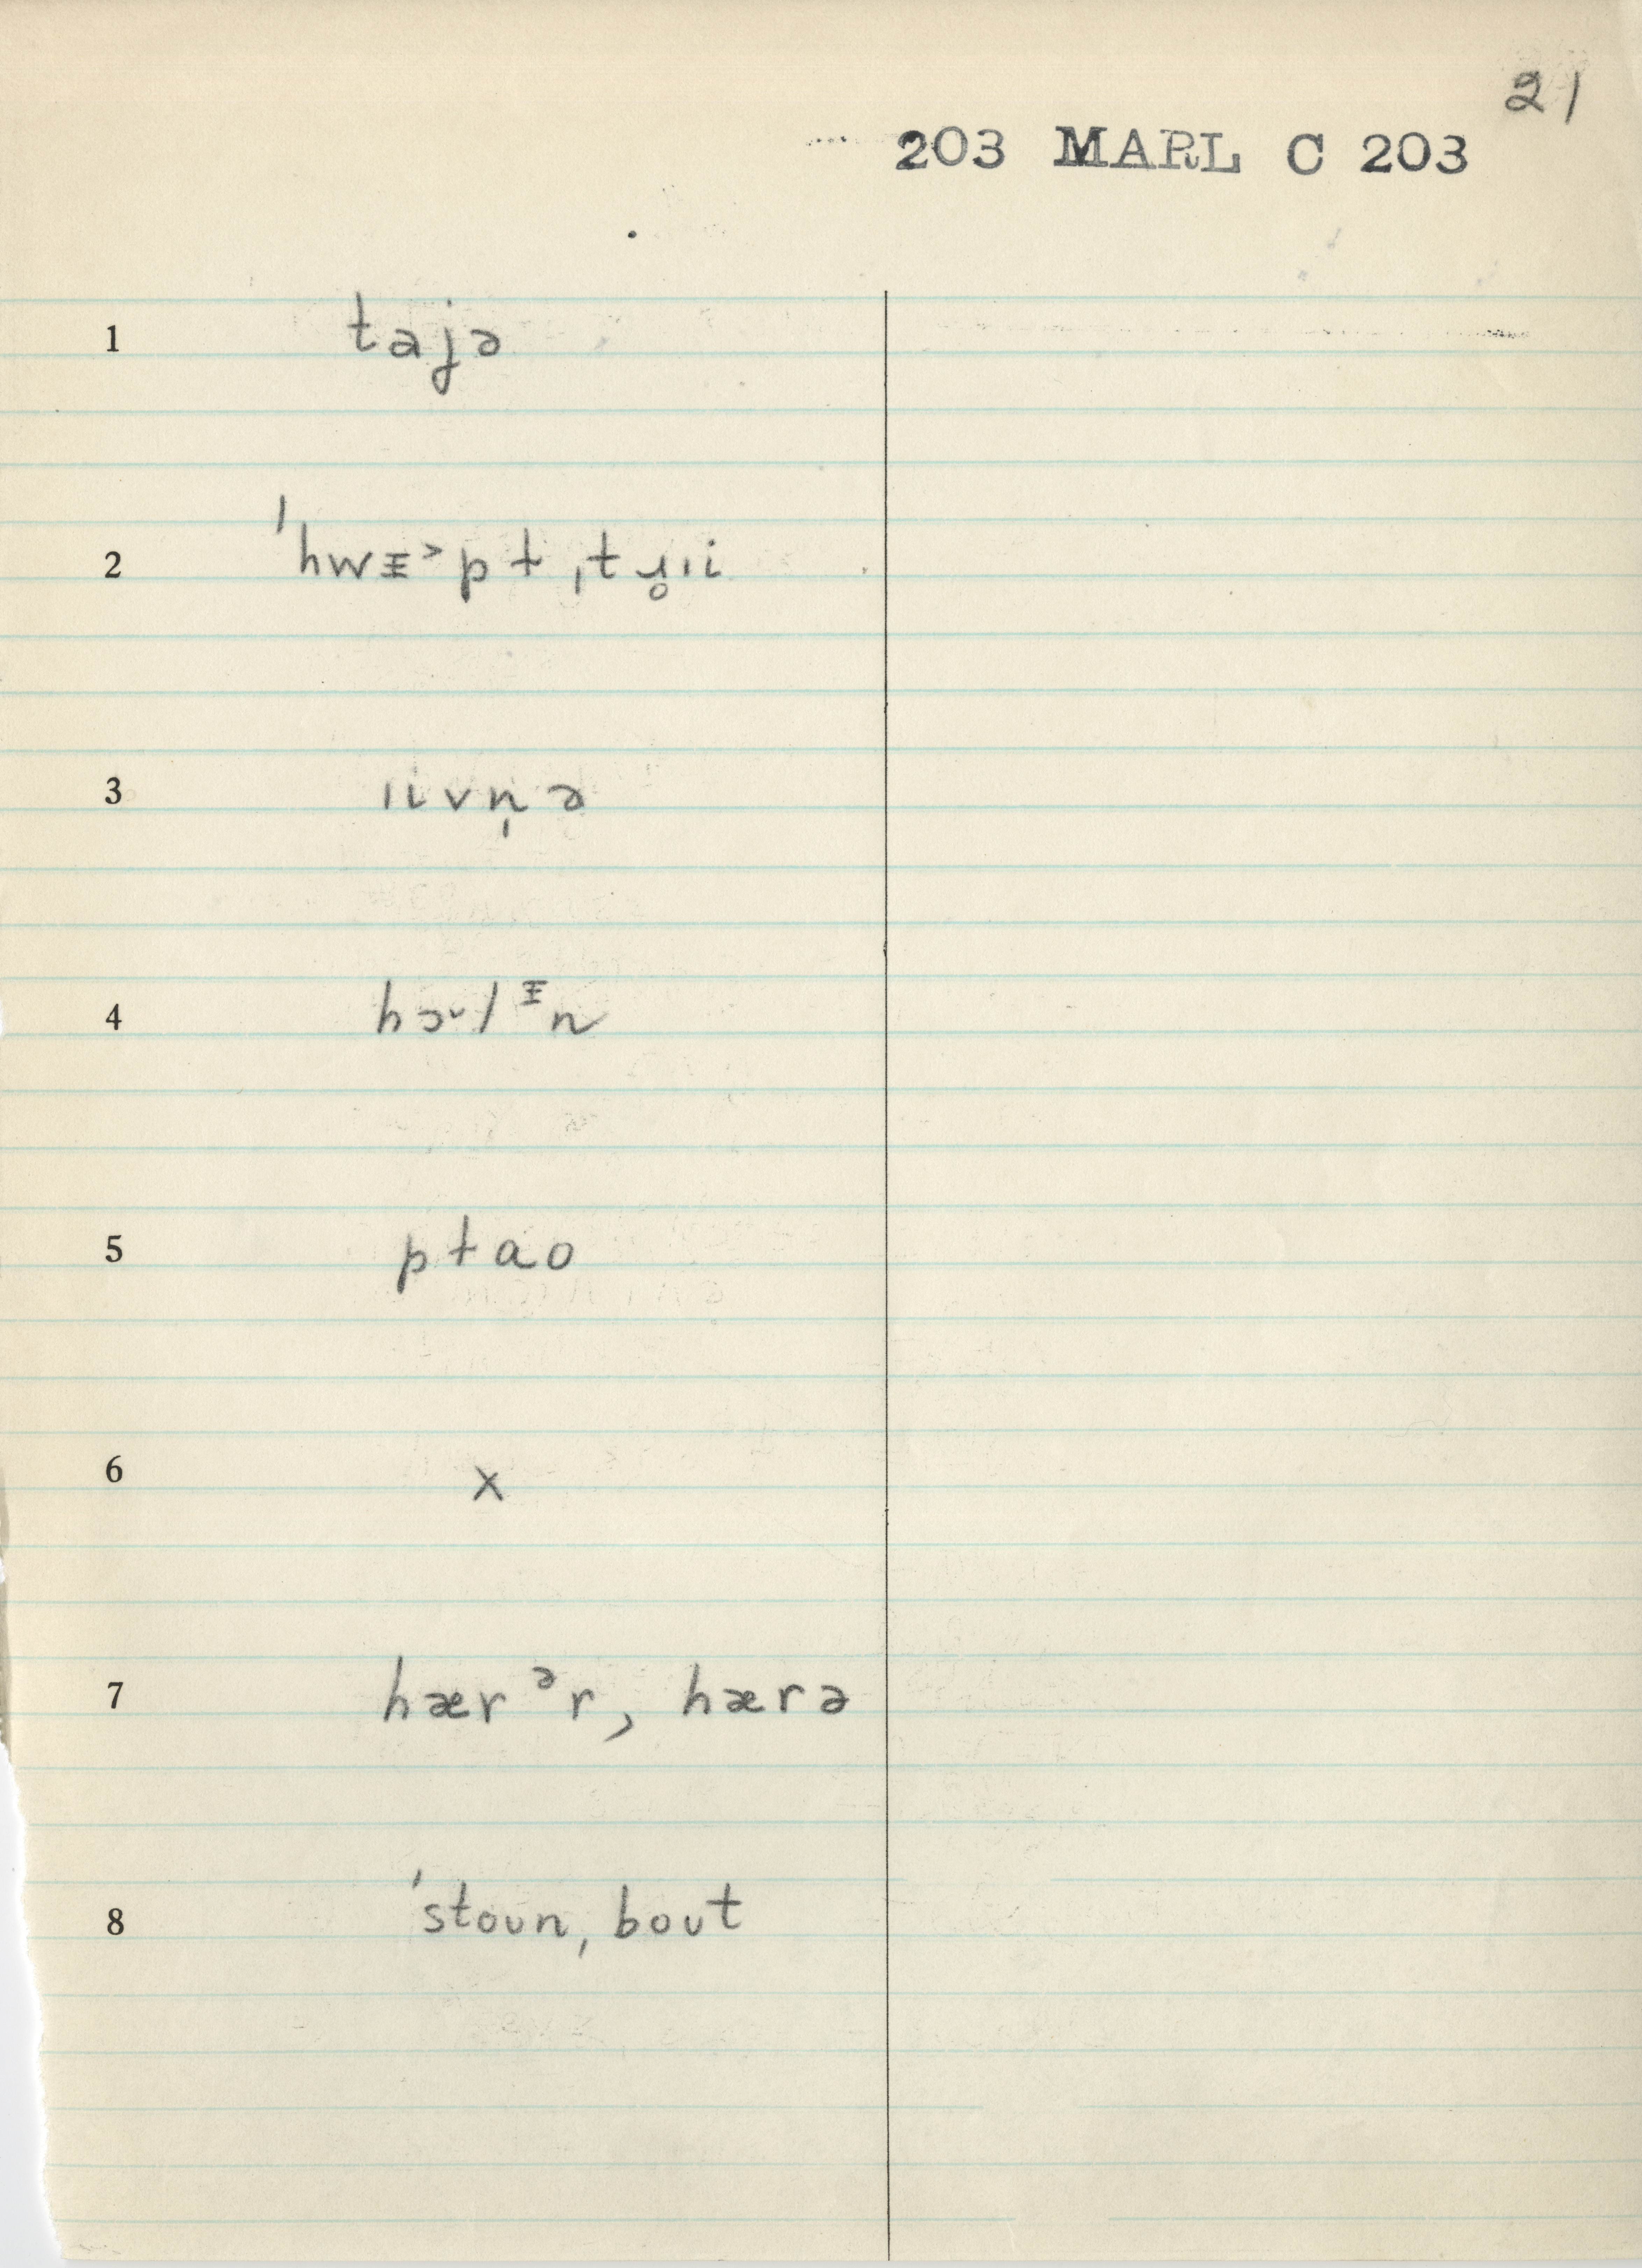 21
203 MARL C 203
1 tajə
2 ˈhwᵻ˃pt ˌtɹ̥ɪi
3 ɪivn̩ə
4 hɔ˞lᵻn
5 ptao
6 x
7 hærᵊr, hærə
8 ˈstoun, bout